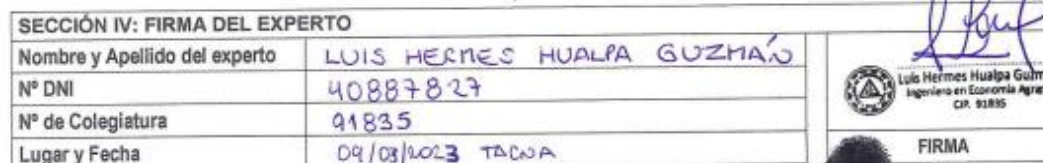 SECCIÓN IV: FIRMA DEL EXPERTO
Nombre y Apellido del experto LUIS HERMES HUALPA GUZMÁN
Nº DNI 40887827
Nº de Colegiatura 91835
Lugar y Fecha 09/03/2023 TACNA
Luis Hermes Hualpa Guzm
Ingeniero en Economía Agrar
CIP. 91835
FIRMA